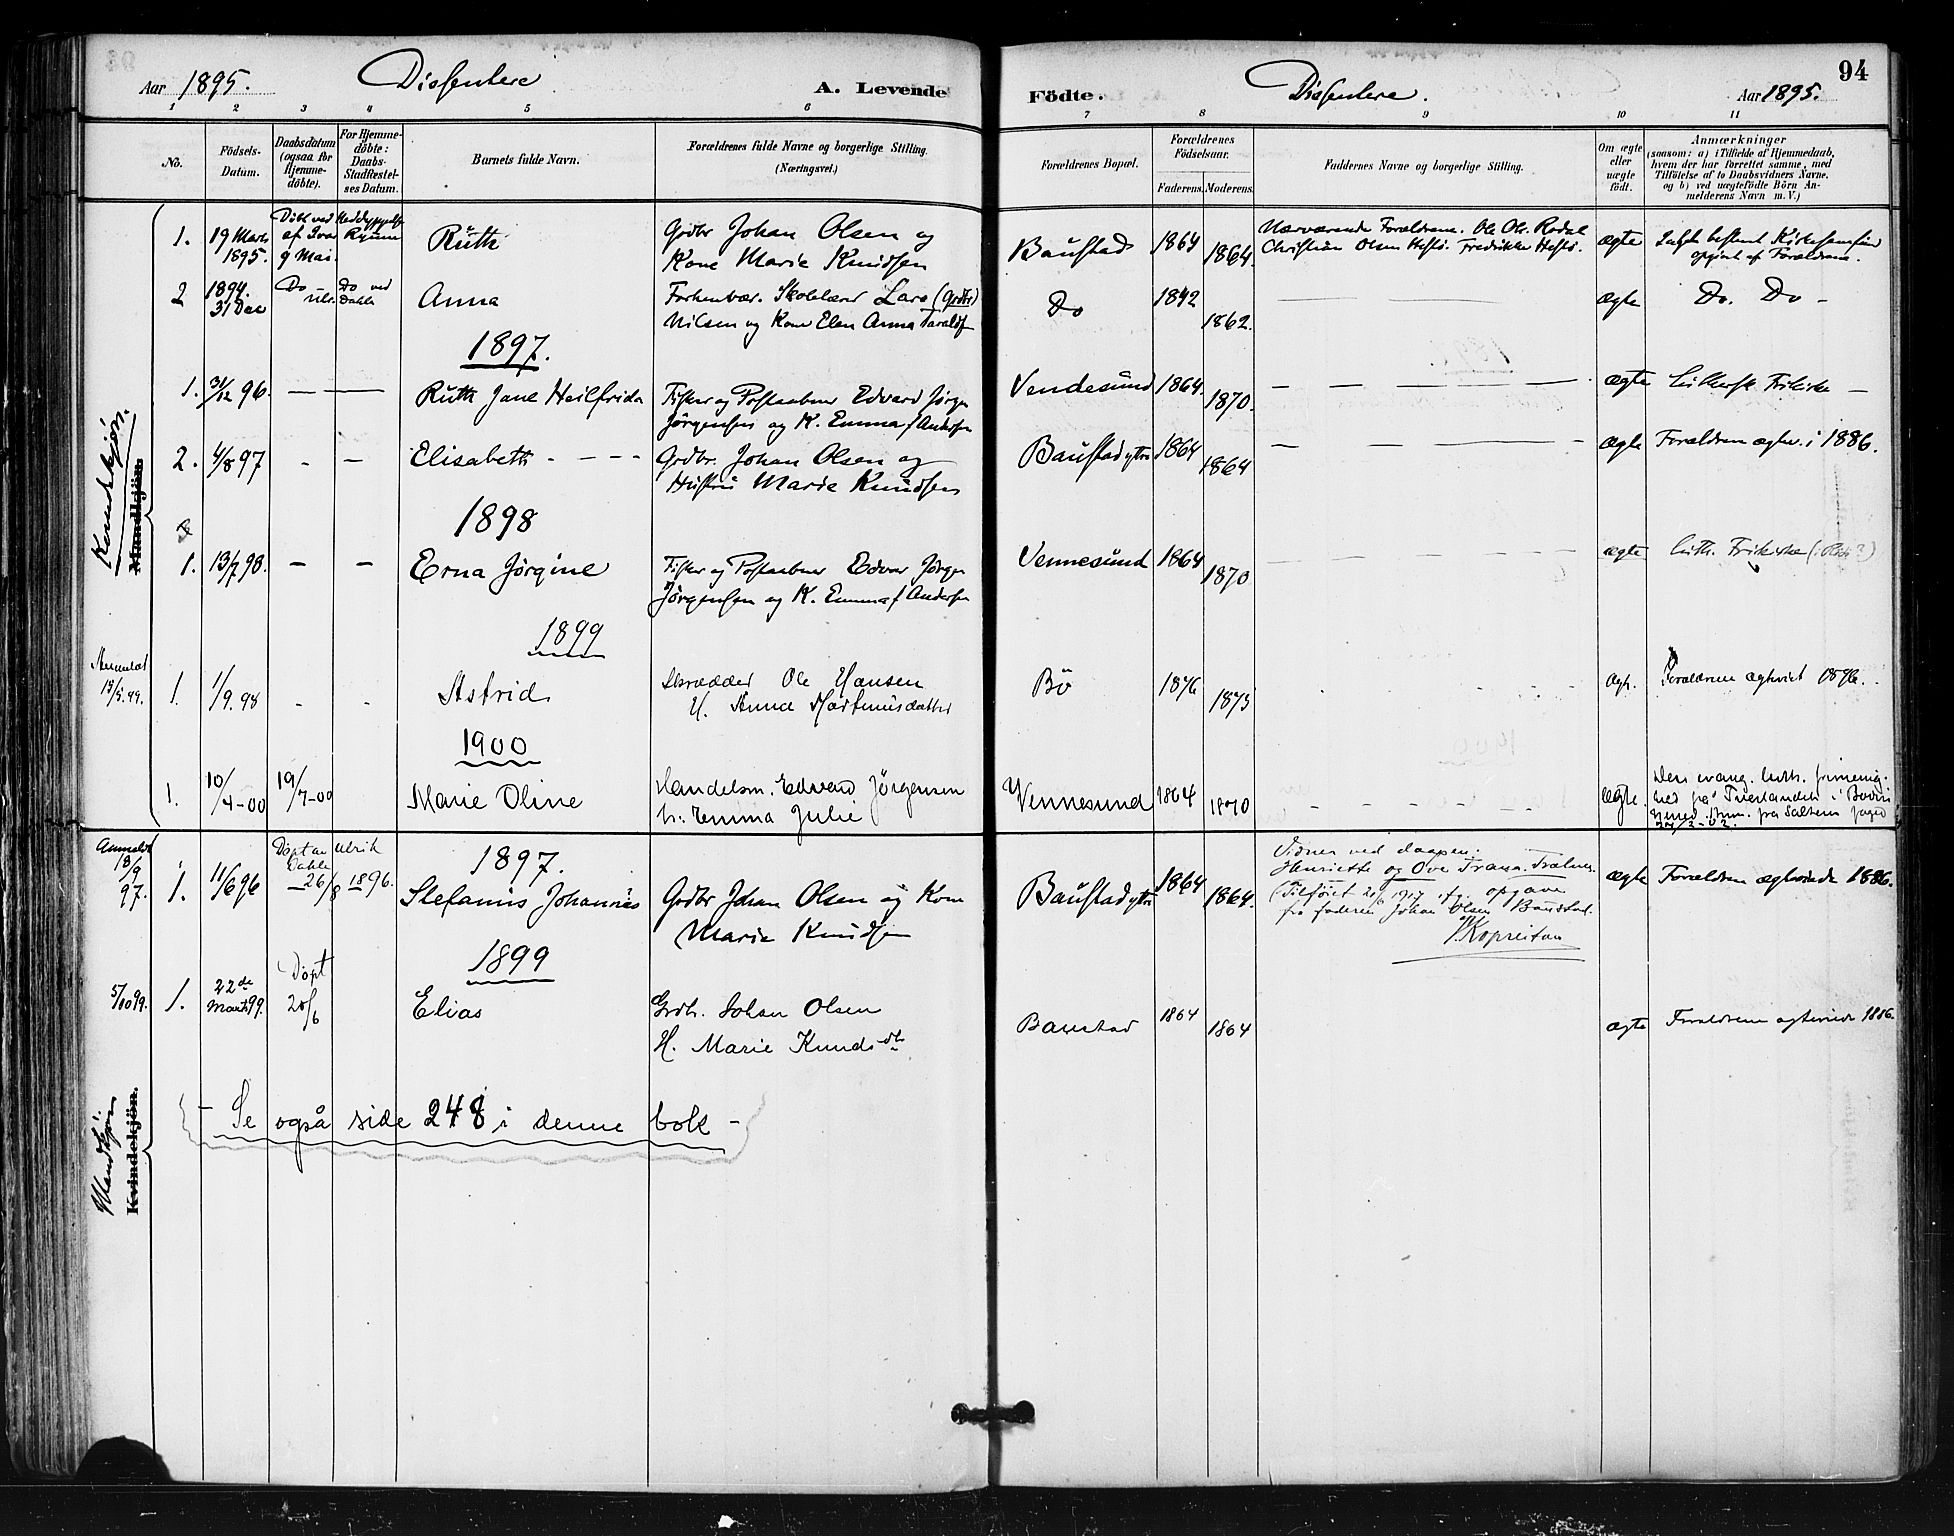 Aar 1895. Dissentere A. Levende
Födte. Dissentere. Aar 1895. 94
1 2 3 4 5 6 7 8 9 10 11
No.
Födsels-
Datum.
Daabsdatum
(ogsaa for
Hjemme-
döbte).
For Hjemme-
döbte:
Daabs-
Stadfæstel-
ses Datum.
Barnets fulde Navn.
Forældrenes fulde Navne og borgerlige Stilling.
(Næringsvei.)
Forældrenes Bopæl.
Forældrenes
Födselsaar.
Faderens. Moderens.
Faddernes Navne og borgerlige Stilling.
Om ægte
eller
uægte
födt.
Anmærkninger
(saasom: a) i Tilfælde af Hjemmedaab,
hvem der har forrettet samme, med
Tilföielse af to Daabsvidners Navne,
og b) ved uægtefödte Börn An-
melderens Navn m. V.)
Kvindekjön.
Mandkjön.
1. 19 Marts 1895. Döbt ved af 9 Mai. Ruth
Grdbr Johan Olsen og
Kone Marie Knudsen
Baustad 1864 1864. Nærværende Forældrene. Ole Ols. Rodal
Christian Olsen Fredrikke
ægte opgivet af Forældrene.
2 1894. 31 Dec Do Do ved Dahle Anna
Forhenvær. Skolelærer Lars (Grdbr)
Nilsen og Kone Elen Anna
Do 1842 1862. ægte Do. Do –
1897.
1. 31/12 96. — — Ruth Jane Heilfrida
Fisker og Postaabner Edvard Jörgen
Jörgensen og K. Emma f Andersen
Vendesund 1864. 1870. ægte Luthersk Frikirke —
2. 4/8 97 - — Elisabeth - - - -
Grdbr. Johan Olsen og
Hustru Marie Knudsen
Baustad ytre 1864 1864 ægte Forældrene ægtev. i 1886.
1898
1. 13/7 98. — — Erna Jørgine
Fisker og Postaabner Edvar Jörgen
Jörgensen og K. Emma f Andersen
Vennesund 1864 1870 ægte Luth. Frikirke
1899
Anmeldt
15/5. 99.
1. 1/9. 98 - - Astrid
Skrædder Ole Hansen
H. Anna Martinusdatter
Bö 1876 1875 ægt. Forældrene ægteviet 1896.
1900
1. 10/4-00 19/7-00 Marie Oline
Handelsm. Edvard Jörgensen
h: Emma Julie
Vennesund 1864 1870 ægte.
Den evang. luth. frimenig-
hed på i Bodin
27/2-02.
Mandkjön.
Kvindekjön.
1897.
Anmeldt
18/9
97.
1. 11/6 96 Döpt av Ulrik
Dahle
26/8 1896. Stefanus Johannes
Grdbr Johan Olsen og Kone
Marie Knudsen
Baustad ytre 1864 1864.
Vidner ved daapen:
Henriette og Ove
(Tilföiet 20/6 1917 opgave
fra faderen Johan Olsen Baustad.
ægte Forældrene ægteviede 1886.
1899
5/10 99.
1. 22de Marts 99. Döpt 20/6 Elias
Grdb. Johan Olsen
H. Marie Knudsdtr
Baustad 1864 1864 ægte Forældrene ægteviede 1886.
– Se også side 248 i denne bok –